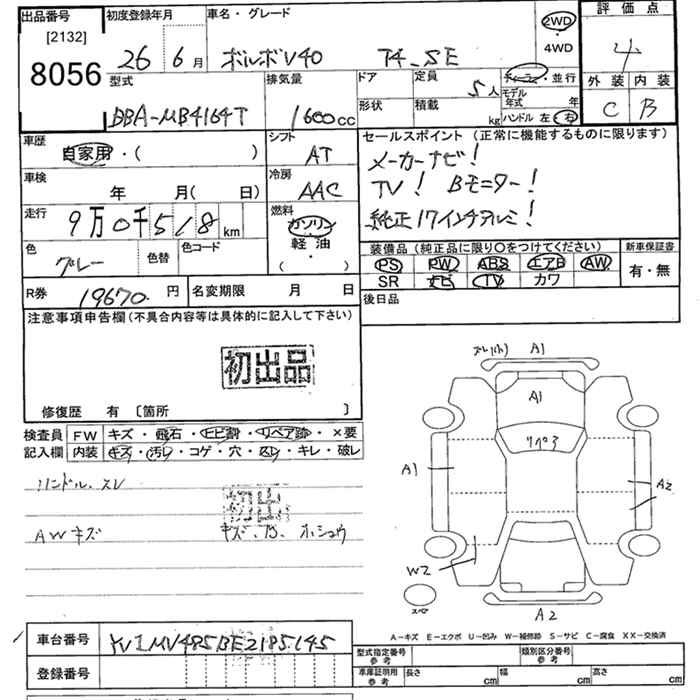 出品番号 初度登録年月 車名・グレード 評価点
[2132] 2WD
8056 26 6月 ボルボV40 T4 SE ・ 4WD 4
型式 排気量 ドア 定員 5人 ディーラー・並行 外装 内装
BBA-MB4164T 1600cc 形状 積載 kg モデル年式 年 C B
ハンドル 左 右
車歴 シフト セールスポイント (正常に機能するものに限ります)
自家用・( ) AT メーカーナビ!
車検 年 月( 日) 冷房 AAC TV! Bモニター!
走行 9万0千518km 燃料 ガソリン 純正17インチアルミ!
軽油
色 グレー 色替 色コード ・ ( ) 装備品 (純正品に限り○をつけてください) 新車保証書
PS PW ABS エアB AW 有・無
R券 19670 円 名変期限 月 日 SR ナビ TV カワ
注意事項申告欄(不具合内容等は具体的に記入して下さい) 後日品
初出品
修復歴 有 [箇所 ]
検査員 FW キズ・飛石・ヒビ割・リペア跡・×要
記入欄 内装 キズ・汚レ・コゲ・穴・スレ・キレ・破レ
ハンドル、スレ
初出
AWキズ
ズレ(小) A1
A1
リペア
A1
A2
W2
スペア
A2
A-キズ E-エクボ U-凹み W-補修跡 S-サビ C-腐食 XX-交換済
車台番号 YV1MV485BE2185145
登録番号
型式指定番号 参考 類別区分番号 参考
車庫証明用 参考 長さ cm 幅 cm 高さ cm